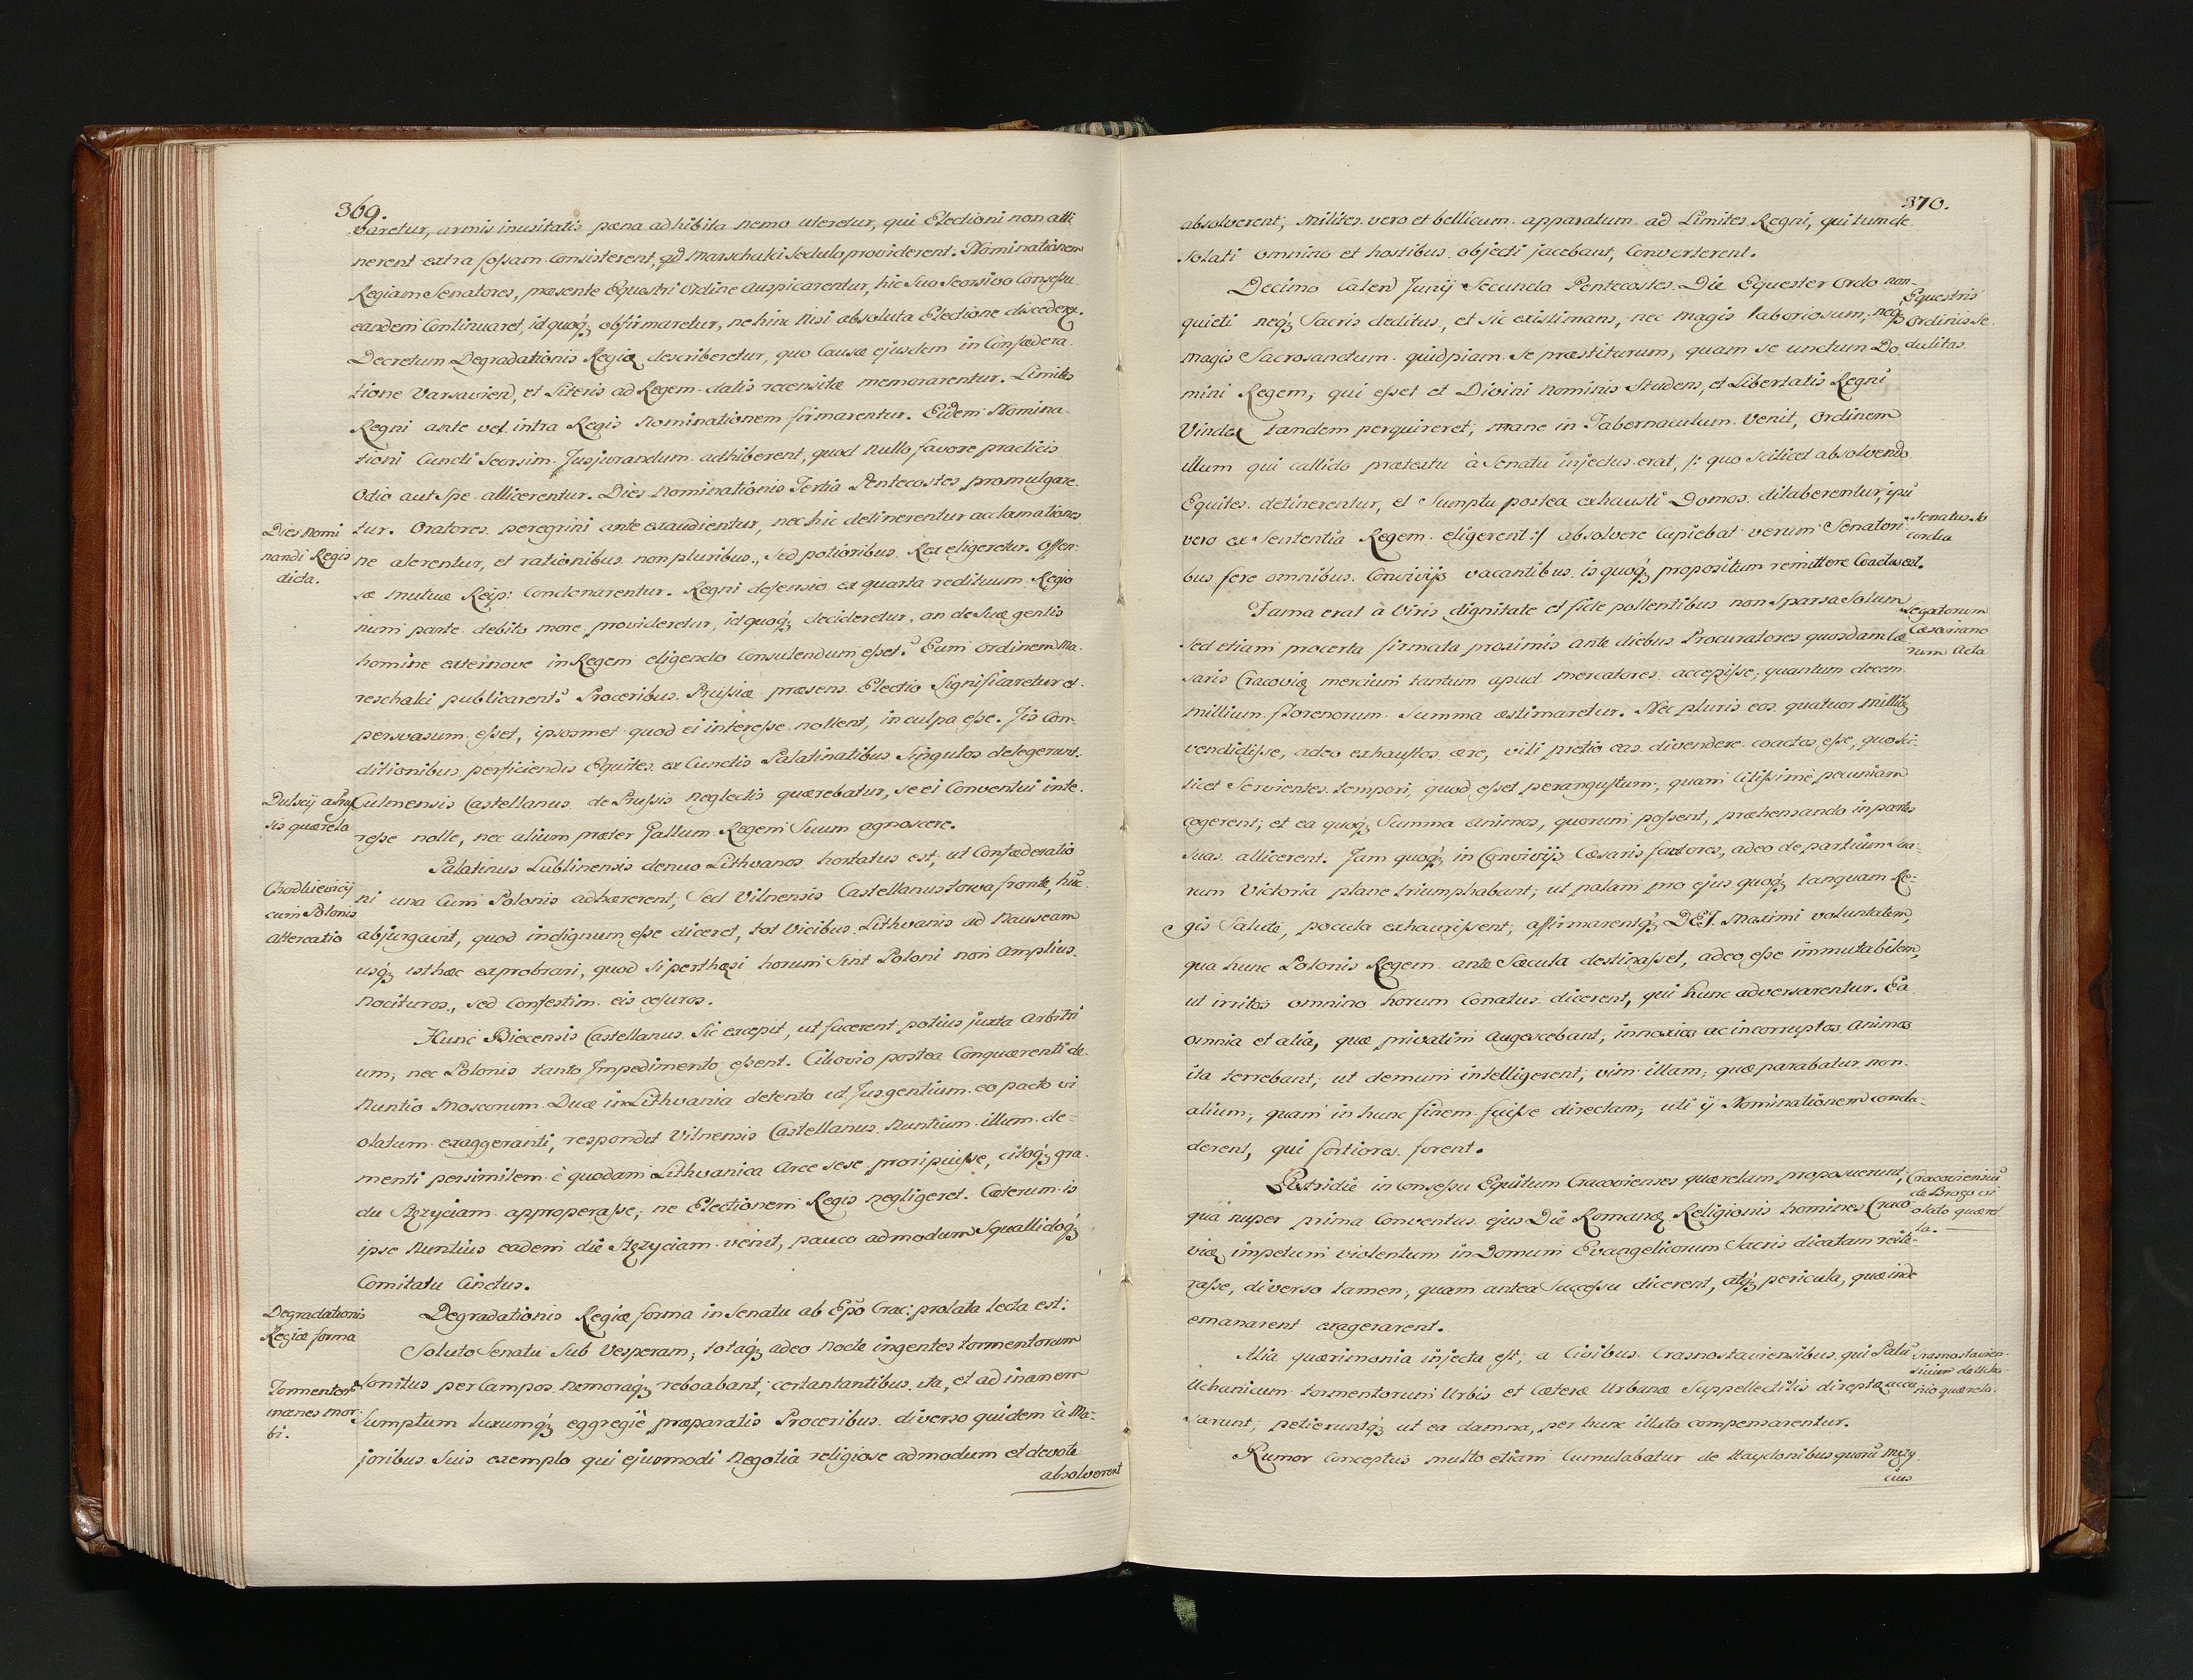 369.
varetur, armis inusitatis pœna adhibita nemo uteretur, qui Electioni non atti
nerent extra fossam Consisterent, qd Marschalci sedulo providerent. Nominationem
Regiam Senatores, præsente Equestri Ordine Auspicarentur, hic Suo Seorsivo Consessu
eandem Continuaret, id quoq́ꝫ obfirmaretur, ne hinc Nisi absoluta Electione discedere.
Decretum Degradationis Regiæ describeretur, quo Causæ ejusdem in Confædera
tione Varsavien, et Literis ad Regem datis recensitæ memorarentur. Limites
Regni ante vel intra Regis Nominationem firmarentur. Eidem Nomina
tioni Cuncti Seorsim Jusjurandum adhiberent, quod Nullo favore practicis
Odio aut Spe allicerentur. Dies Nominationis Tertia Pentecostes promulgare
Dies Nomi
nandi Regis
dicta.
tur. Oratores peregrini ante exaudientur, nec hic detinerentur acclamationes
ne alerentur, et rationibus non pluribus, Sed potioribus Rex eligeretur. Offen
sæ Mutuæ Reip: Condonarentur. Regni defensio ex quarta redituum Regio
num parte debito more provideretur, id quoq́ꝫ decideretur, an de Suæ gentis
homine externove in Regem eligendo Consulendum esset? Eum Ordinem Ma
reschalci publicarent? Proceribus Prussiæ præsens Electio Significaretur et
persvasum esset, ipsosmet quod ei interesse nollent, in culpa esse. Jis Con
ditionibus perficiendis Equites ex Cunctis Palatinatibus Singulos delegerunt.
Dulscij a Prus
sis quærela
Culmensis Castellanus de Prussis Neglectis quærebatur, se ei Conventui inte
resse nolle, nec alium præter Gallum Regem Suum agnoscere.
Palatinus Lublinensis denuo Lithvanos hortatus est, ut Confæderatio
Chodkievicij
cum Polonis
Altercatio
ni una Cum Polonis adhærerent, Sed Vilnensis Castellanus torva fronte, huic
abjurgavit, quod indignum esse diceret, tot Vicibus Lithvanis ad Nauseam
usq́ꝫ isthæc exprobrari, quod Si perthæsi horum Sint Poloni non Amplius
Nocituros, sed Confestim eis cesuros.
Hunc Biecensis Castellanus Sic excepit, ut facerent potius juxta Arbitri
um, nec Polonis tanto Impedimento essent. Cikovio postea Conquærenti de
Nuntio Moscorum Ducæ in Lithvania detento ut Jus gentium eo pacto vi
olatum exaggeranti, respondit Vilnensis Castellanus Nuntium illum de-
menti persimilem è quodam Lithvanica Arce sese proripuisse, citoq́ꝫ gra
du Stęzyciam approperasse, ne Electionem Regis negligeret. Cæterum is
ipse Nuntius eadem die Stęzyciam venit, pauco admodum Squallidoq́ꝫ
Comitatu Cinctus.
Degradationis
Regiæ forma
Degradationis Regiæ forma in Senatu ab Epo Crac: prolata lecta est:
Soluto Senatu Sub Vesperam, totaq́ꝫ adeo Nocte ingentes tormentorum
Tormentor
inanes mor
bi.
Sonitus per Campos Nemoraq́ꝫ reboabant, certantantibus ita, et ad inanem
Sumptum luxumq́ꝫ eggregiè præparatis Proceribus diverso quidem à Ma-
joribus Suis exemplo qui ejusmodi Negotia religiose admodum et devote
absolverent
370.
absolverent, Milites vero et bellicum apparatum ad Limites Regni, qui tum de
solati omnino et hostibus objecti jacebant, Converterent.
Decimo Calend Junij Secunda Pentecostes Die Equester Ordo non
Equestris
Ordinis Se
dulitas
quieti neq́ꝫ Sacris deditus, et sic existimans, nec magis laboriosum, neq́ꝫ
magis Sacrosanctum quidpiam Se præstiturum, quam se unctum Do
mini Regem, qui esset et Divini Nominis Studens, et Libertatis Regni
Vindex tandem perquireret, mane in Tabernaculum Venit, Ordinem
illum qui callido prætextu à Senatu injectus erat, /: quo scilicet absolvendo
Equites detinerentur, et Sumptu postea exhausti Domos dilaberentur, ipsi
Senatus So
cordia
vero ex Sententia Regem eligerent :/ absolvere Cupiebat verum Senatori
bus fere omnibus Convivijs vacantibus is quoq́ꝫ propositum remittere Coactus est.
Fama erat à Viris dignitate et fide pollentibus non Sparsa Solum
Legatorum
Cæsariano
rum Acta
sed etiam procerta firmata proximis ante diebus Procuratores quosdam Cæ
saris Cracoviæ mercium tantum apud mercatores accepisse, quantum decem
millium florenorum Summa æstimaretur. Nec pluris eos quatuor millibꝫ
vendidisse, adeo exhaustos ære, vili pretio eas divendere coactos esse, quo Sci
licet Servientes tempori, quod esset perangustum, quam Citissimè pecuniam
cogerent, et ea quoq́ꝫ Summa Animos, quorum possent, præhensando in partes
suas allicerent. Jam quoq́ꝫ in Convivijs Cæsaris fautores, adeo de partium sua-
rum Victoria plane triumphabant, ut palam pro ejus quoq́ꝫ tanquam Re-
gis Salute, pocula exhaurissent, affirmarentq́ꝫ DEJ. Maximi voluntatem,
qua hunc Polonis Regem ante Sæcula destinasset, adeo esse immutabilem,
ut irritos omnino horum Conatus dicerent, qui hunc adversarentur. Ea
omnia et alia, quæ privatim Augescebant, innoxios ac incorruptos Animos
ita terrebant, ut demum intelligerent, vim illam, quæ parabatur non
alium, quam in hunc finem fuisse directam, uti ij Nominationem conclu-
derent, qui fortiores forent.
Postridie in Consessu Equitum Cracovienses quærelam proposuerunt,
Cracoviensiū
de Brogo vi
olato quærel
la.
qua nuper prima Conventus ejus Die Romanæ Religionis homines Craco
viæ impetum violentum in Domum Evangelicorum Sacris dicatam reite-
rasse, diverso tamen, quam antea Successu dicerent, atq́ꝫ pericula, quæ inde
emanarent exagerarent.
Alia quærimonia injecta est, a Civibus Crasnostaviensibus qui Palū
Crasnostavien
sium de Ucha
nio quærela.
Uchanium tormentorum Urbis et Cæteræ Urbanæ Suppellectilis direptæ accu
sarunt, petieruntq́ꝫ ut ea damna, per hunc illuta compensarentur.
Rumor Conceptus multo etiam Cumulabatur de Haydonibus quorū
cius